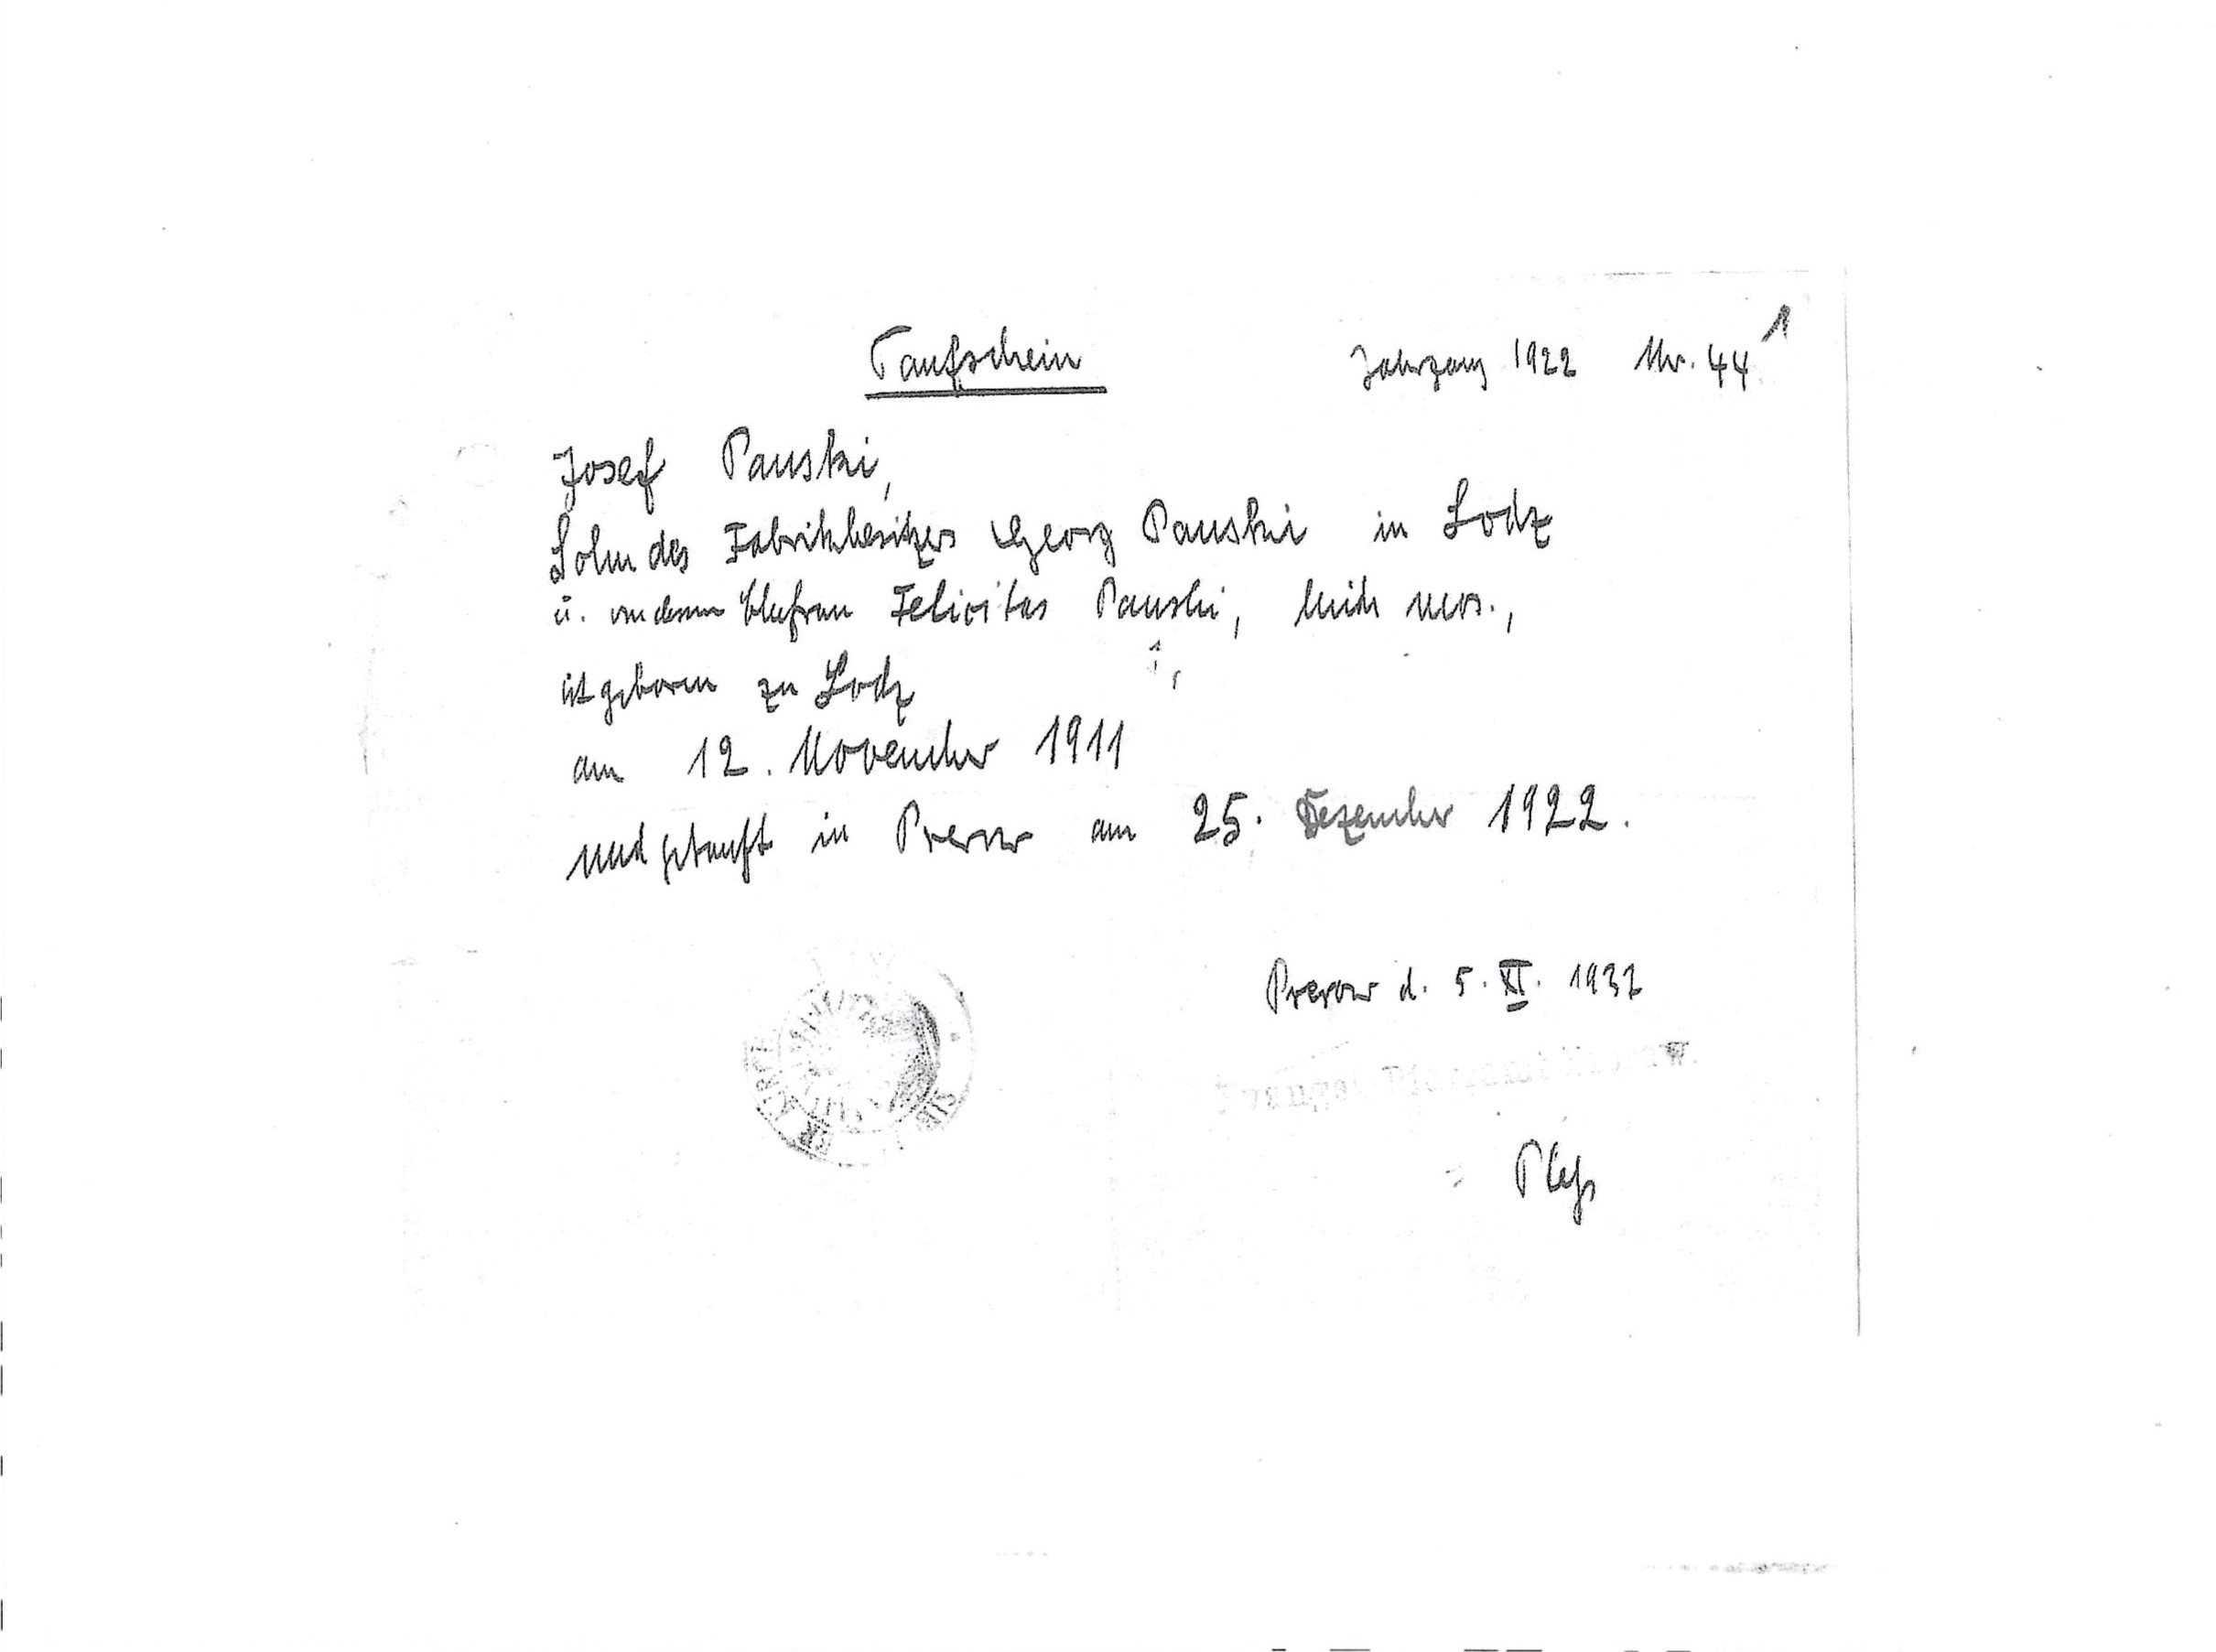 Taufschein
Jahrgang 1922 Nr. 44
1
Josef Pauski,
Sohn des Fabrikbesitzers Georg Pauski in Lodz
u. von dessen Ehefrau Felicitas Pauski, beide mos.,
ist geboren zu Lodz
am 12. November 1911
und getauft in Prerow am 25. Dezember 1922.
Prerow d. 5. XI. 1937
Pleß